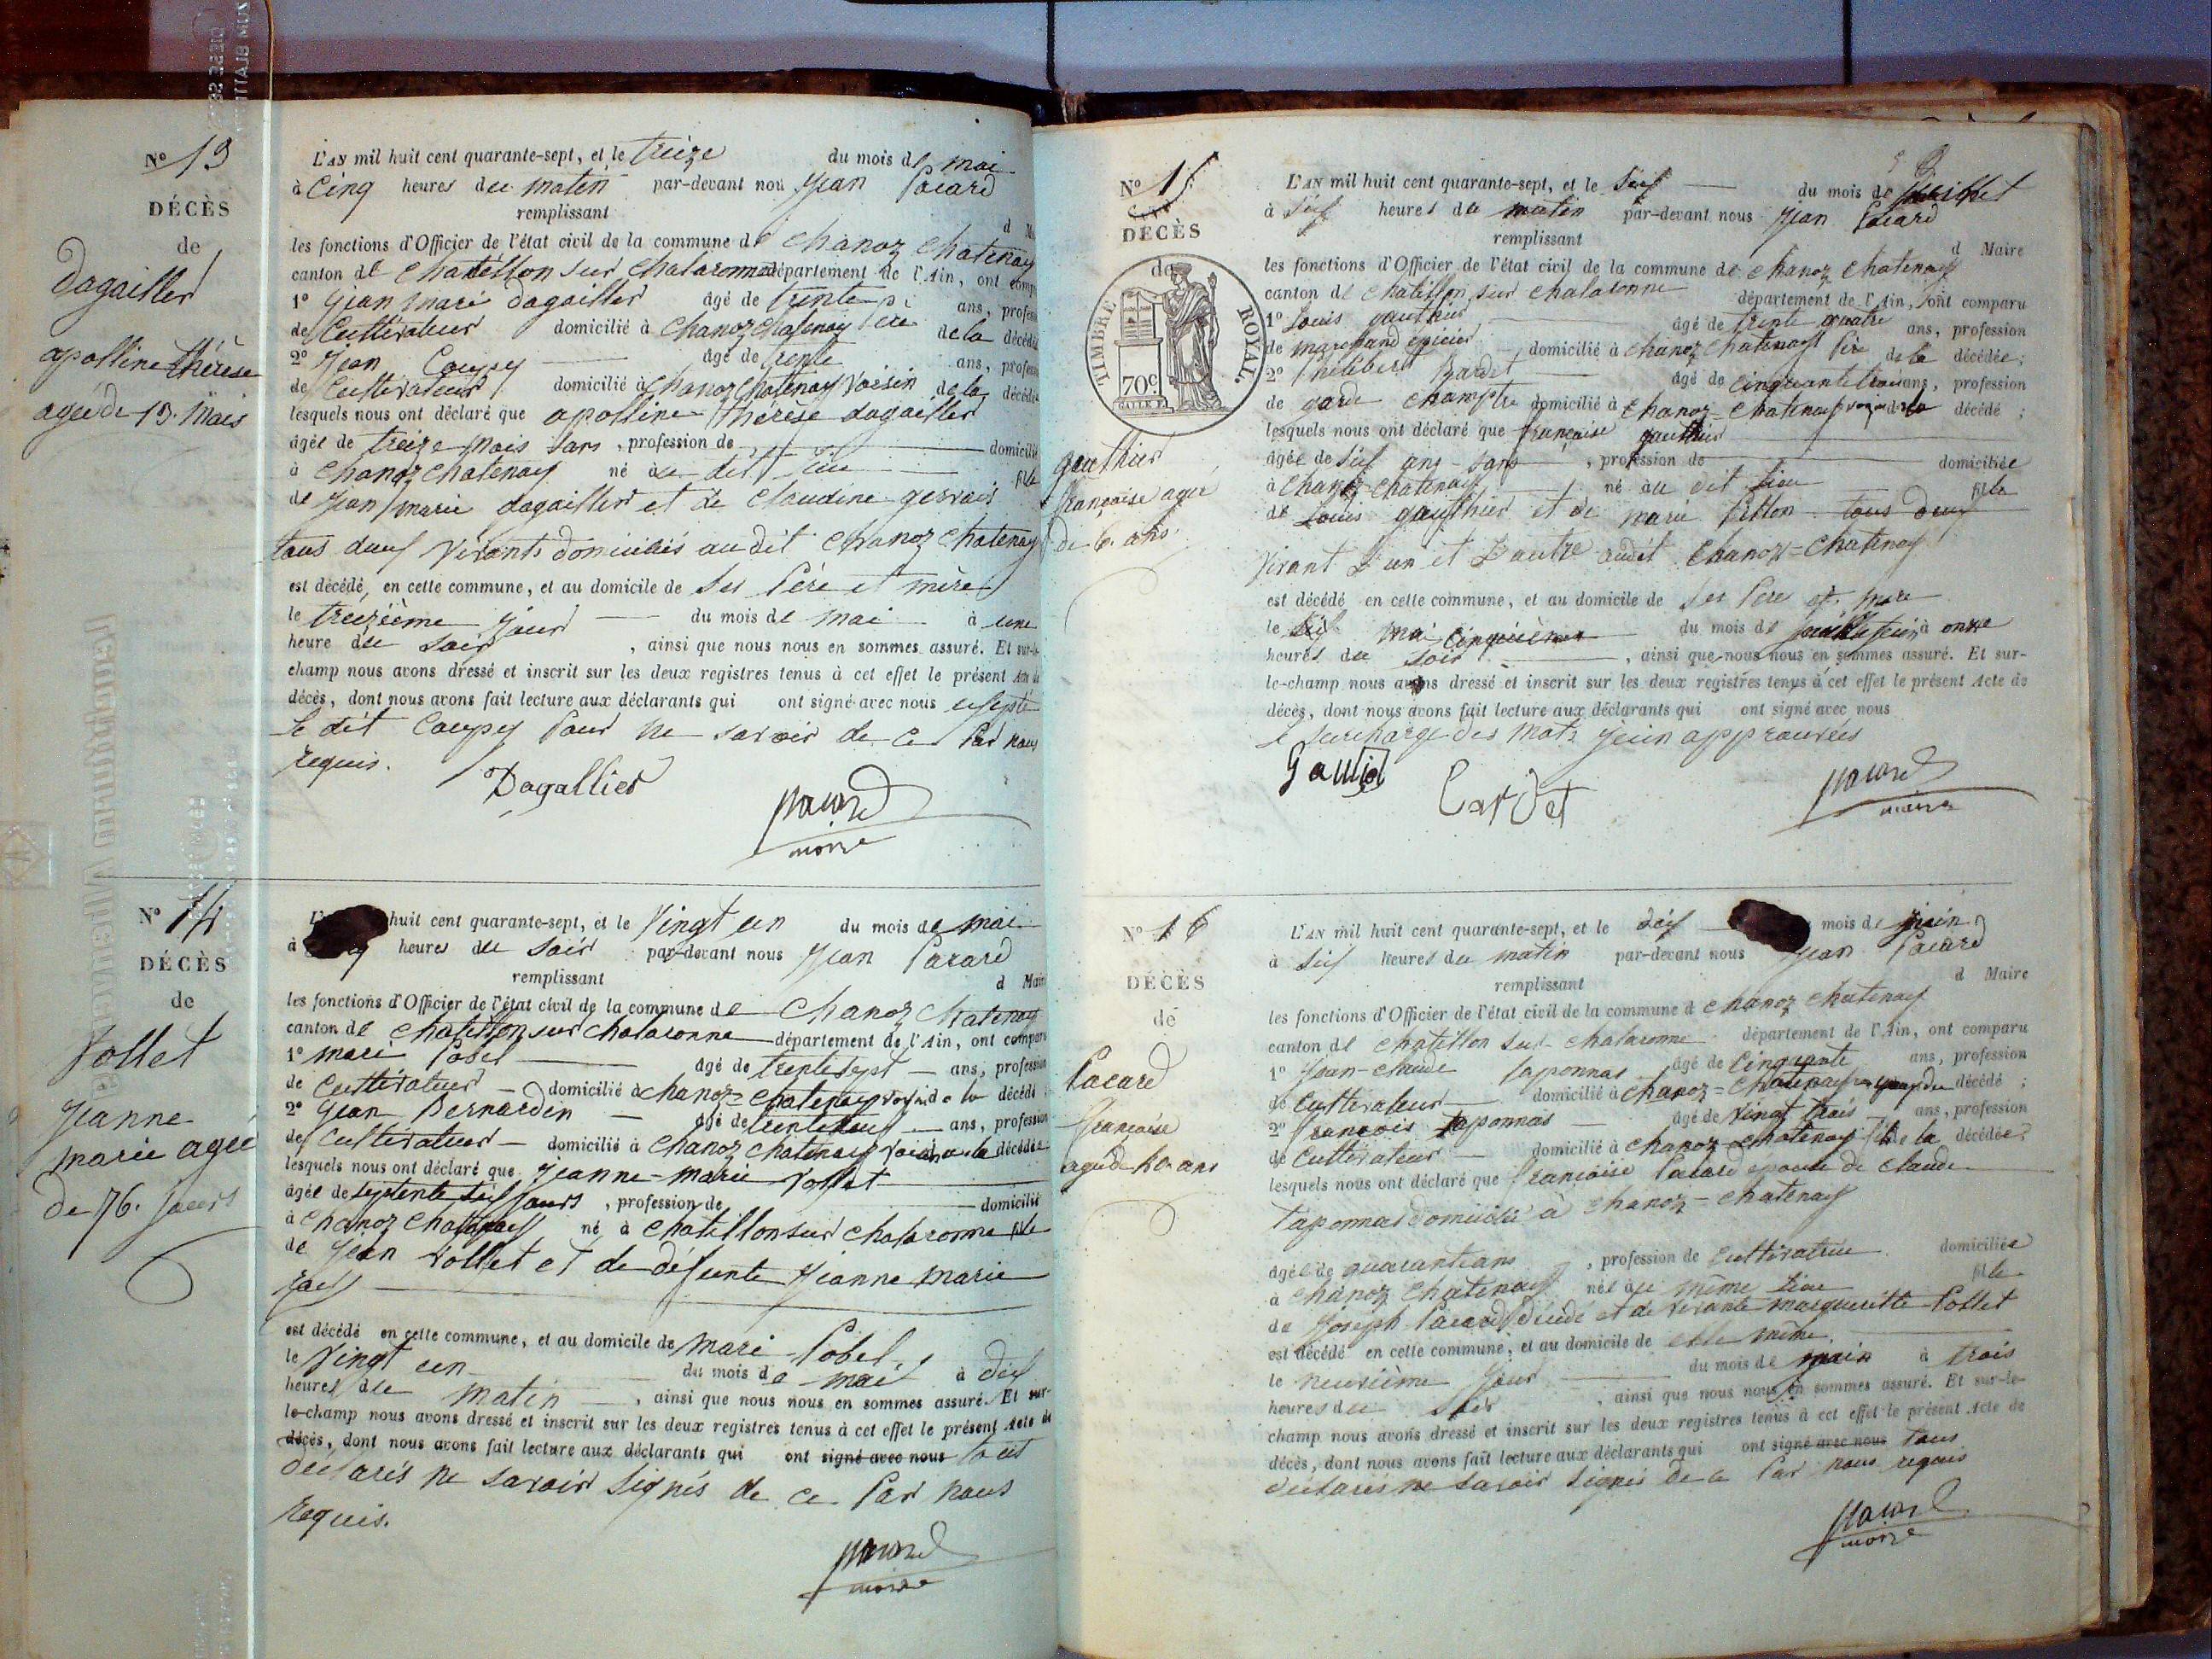 N° 13
DÉCÈS
de
Dagailler
apolline thérèse
agée de 13. Mois
L'AN mil huit cent quarante-sept, et le treize du mois de mai
à Cinq heures du matin par-devant nous Jean Pacard
remplissant
les fonctions d'Officier de l'état civil de la commune de Chanoz Chatenay
canton de Chatillon sur Chalaronne département de l'Ain, ont comp
1° Jean marie dagailler âgé de trente ans, profes
de Cultivateur domicilié à Chanoz Chatenay de la décédé
2° Jean Coupy âgé de trente ans, profes
de Cultivateur domicilié à Chanoz Chatenay Voisin de la décédé
lesquels nous ont déclaré que apolline thérèse dagailler
âgée de treize mois sans , profession de domicilié
à Chanoz Chatenay né au dit lieu fille
de Jean marie dagailler et de Claudine gervais
tous deux Vivants domiciliés audit Chanoz Chatenay
est décédé, en cette commune, et au domicile de ses Père et mère
le treizième jour du mois de mai à une
heure du soir , ainsi que nous nous en sommes assuré. Et sur-le-
champ nous avons dressé et inscrit sur les deux registres tenus à cet effet le présent Acte de
décès, dont nous avons fait lecture aux déclarants qui ont signé avec nous excepté
Le dit Coupy Pour ne savoir de ce Par nous
requis.
Dagallier
pacard
maire
N° 14
DÉCÈS
de
Vollet
Jeanne
marie agée
de 76. Jours
huit cent quarante-sept, et le Vingt un du mois de mai
à heures du soir par-devant nous Jean Pacard
remplissant
d Maire
les fonctions d'Officier de l'état civil de la commune de Chanoz Chatenay
canton de Chatillon sur Chalaronne département de l'Ain, ont comparu
1° mari Pobel âgé de trente sept ans, profession
de Cultivateur domicilié à Chanoz=Chatenay voisin de la décédé
2° Jean Bernardin âgé de ans, profession
de Cultivateur domicilié à Chanoz Chatenay voisin de la décédée
lesquels nous ont déclaré que Jeanne-marie Vollet
âgée de septente six jours , profession de domicilié
à Chanoz Chatenay né à Chatillon sur Chalaronne fille
de Jean Vollet et de défunte Jeanne marie
est décédé en cette commune, et au domicile de Mari Pobel.
le Vingt un du mois de mai à dix
heures du matin , ainsi que nous nous en sommes assuré. Et sur-
le-champ nous avons dressé et inscrit sur les deux registres tenus à cet effet le présent Acte de
décès, dont nous avons fait lecture aux déclarants qui ont signé avec nous
déclarés ne savoir signés de ce Par nous
requis.
pacard
maire
N° 15
DÉCÈS
de
TIMBRE ROYAL.
70c
gauthier
françoise agée
de 6. ans.
L'AN mil huit cent quarante-sept, et le six du mois de
à six heures du matin par-devant nous Jean Pacard
remplissant
d Maire
les fonctions d'Officier de l'état civil de la commune de Chanoz Chatenay
canton de Chatillon sur Chalaronne département de l'Ain, ont comparu
1° Louis gauthier âgé de trente quatre ans, profession
de marchand épicier domicilié à Chanoz Chatenay Père de la décédée;
2° Philibert Bardet âgé de cinquante trois ans, profession
de garde Champtre domicilié à Chanoz-Chatenay voisin de la décédé ;
lesquels nous ont déclaré que françoise gauthier
âgée de six ans sans , profession de domiciliée
à Chanoz-Chatenay né au dit lieu fille
de Louis gauthier et de marie Pillon tous deux
Vivant L'un et L'autre audit Chanoz=Chatenay
est décédé en cette commune, et au domicile de ses Père et mère
le du mois de juin à onze
heures du soir , ainsi que nous nous en sommes assuré. Et sur-
le-champ nous avons dressé et inscrit sur les deux registres tenus à cet effet le présent Acte de
décès, dont nous avons fait lecture aux déclarants qui ont signé avec nous
surcharge des mots juin approuvées
pacard
maire
N° 16
DÉCÈS
de
Pacard
françoise
agée de 40. ans
L'AN mil huit cent quarante-sept, et le dix mois de juin
à six heures du matin par-devant nous Jean Pacard
remplissant
d Maire
les fonctions d'Officier de l'état civil de la commune d Chanoz Chatenay
canton de Chatillon sur Chalaronne département de l'Ain, ont comparu
1° Jean-Claude Taponnas âgé de Cinquante ans, profession
de Cultivateur domicilié à Chanoz=Chatenay décédé ;
2° François Taponnas âgé de Vingt trois ans, profession
de Cultivateur domicilié à Chanoz-Chatenay de la décédée
lesquels nous ont déclaré que françoise Pacard épouse de Claude
Taponnas domicilié à Chanoz-Chatenay
âgée de quarante ans , profession de Cultivatrice domiciliée
à Chanoz Chatenay née au même lieu fille
de Joseph Pacard décédé et de vivante Margueritte Pollet
est décédé en cette commune, et au domicile de elle même
le neuvième jour du mois de juin à trois
heures du soir , ainsi que nous nous en sommes assuré. Et sur-le-
champ nous avons dressé et inscrit sur les deux registres tenus à cet effet le présent Acte de
décès, dont nous avons fait lecture aux déclarants qui ont signé avec nous tous
déclarés ne savoir signés de ce Par nous requis
pacard
maire